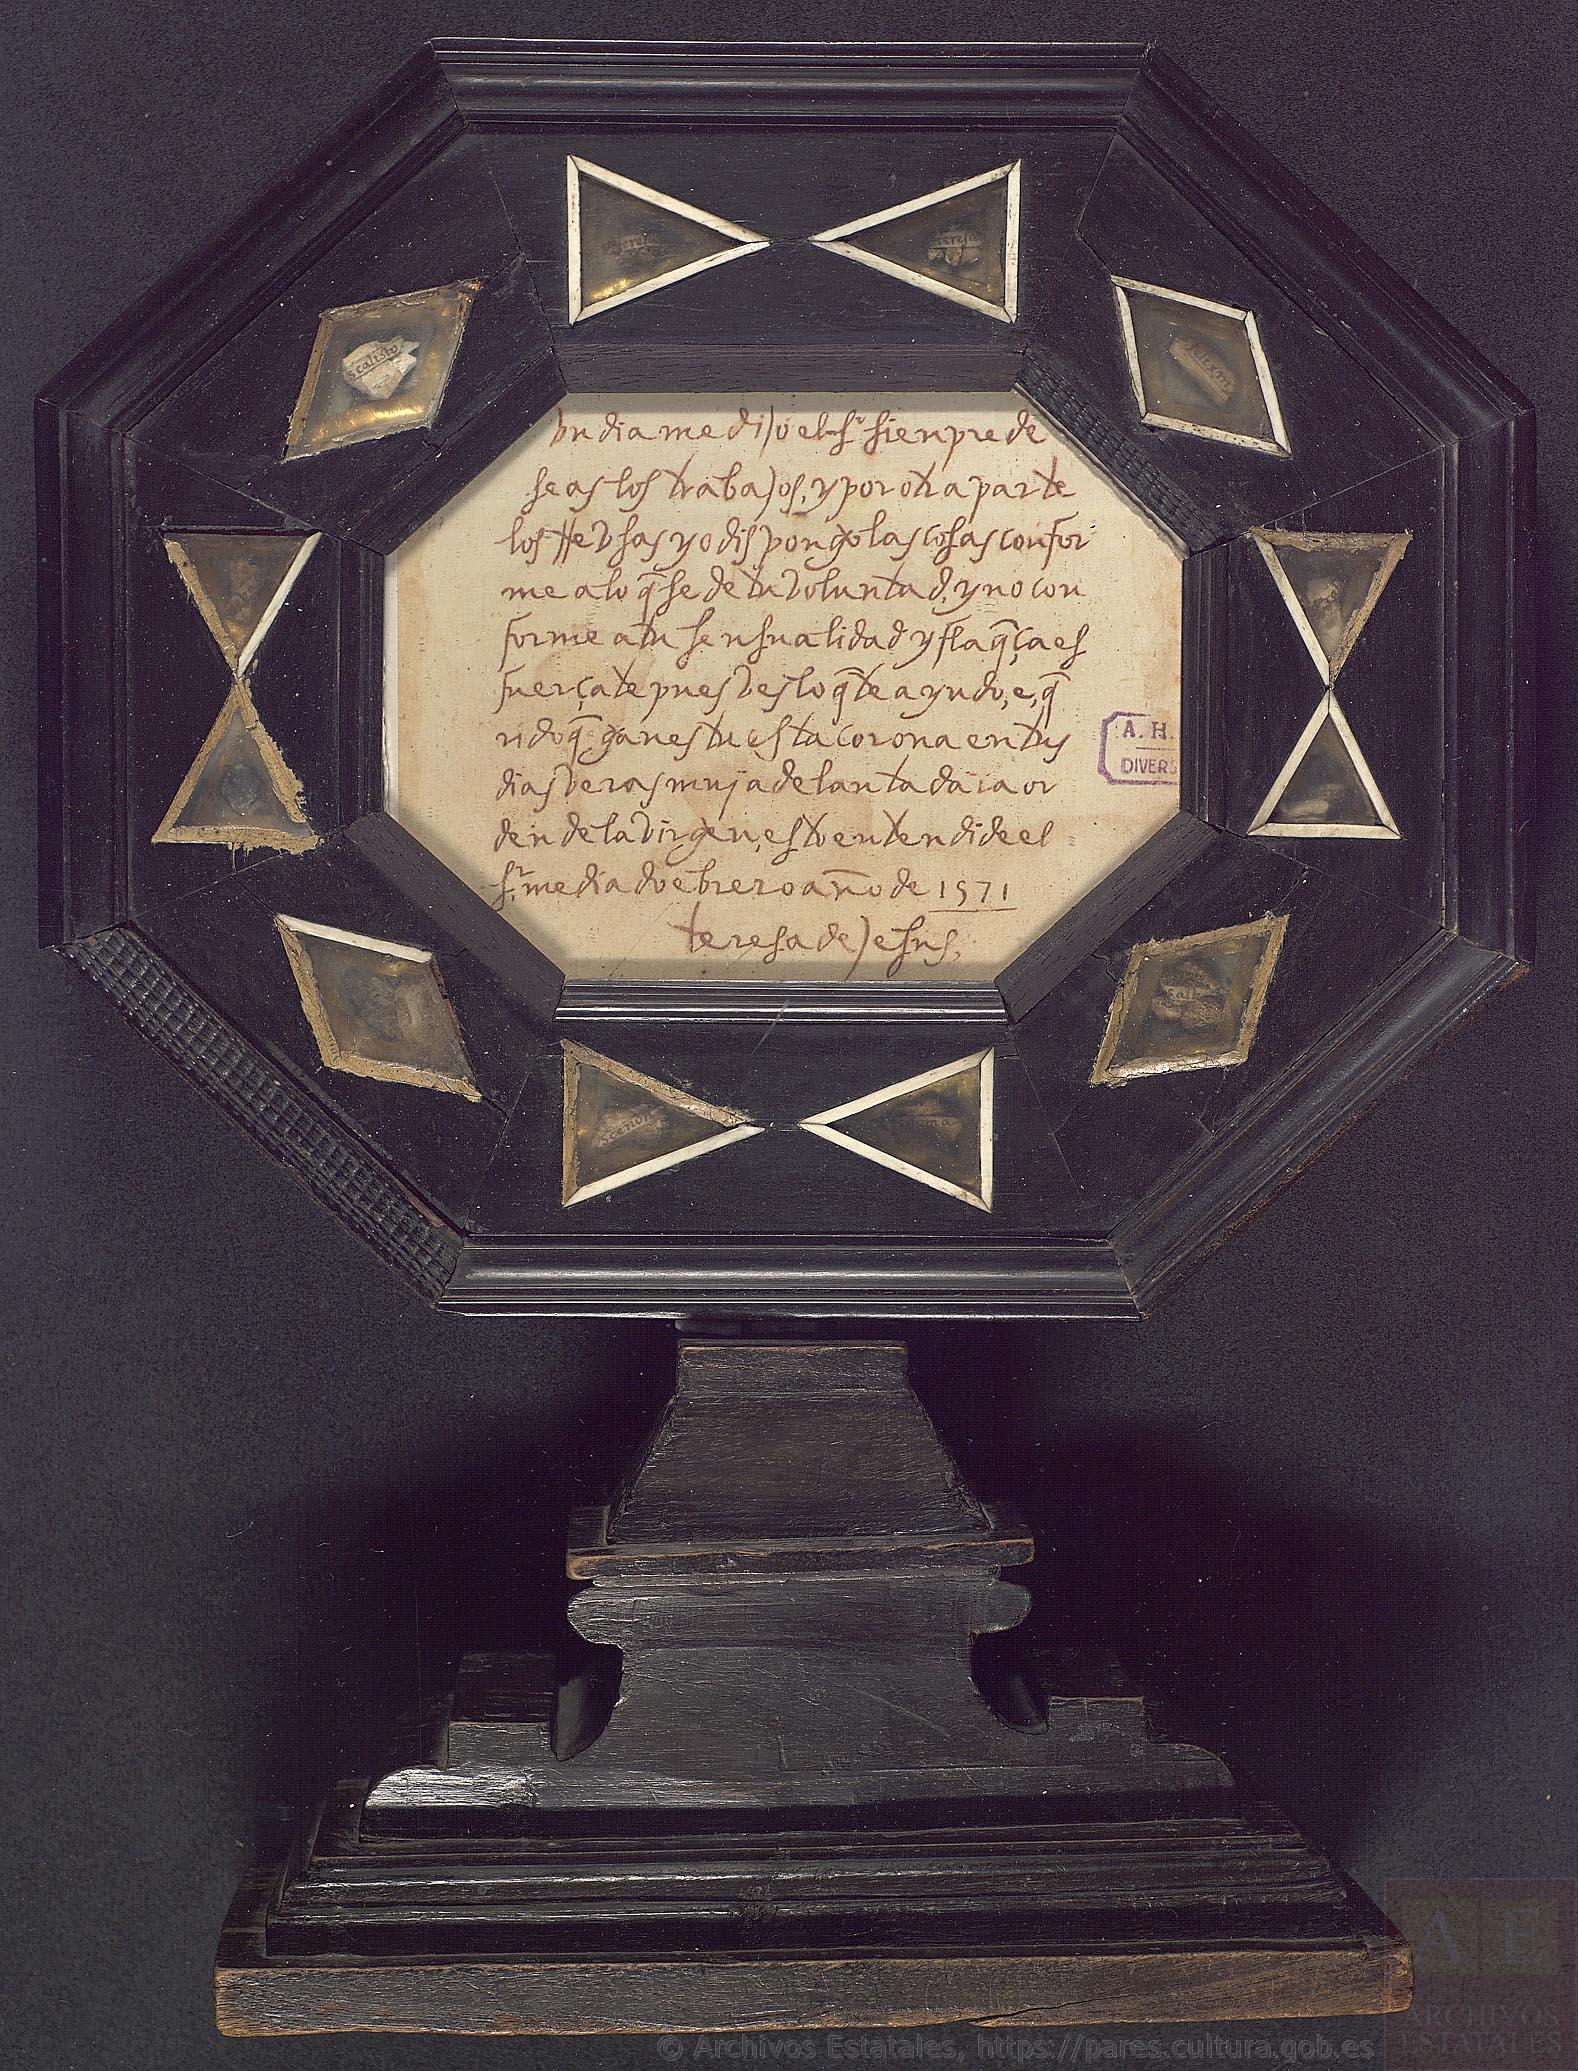 vn dia me dijo el sr sienpre de
seas los trabajos, y por otra parte
los rrevsas yo dispongo las cosas confor
me a lo q̃ se de tu voluntad, y no con
forme a tu sensualidad y flaq̃ça es
fuerçate pues ves lo q̃ te ayudo, e, q̃
rido q̃ ganes tu esta corona en tus
dias veras muy adelantada la or
den de la virgen, esto entendi de el
sr. mediado ebrero año de 1571
teresa de Jesus,
A. H.
DIVERS
Scalisto
© Archivos Estatales, https://pares.cultura.gob.es
A E
ARCHIVOS
ESTATALES